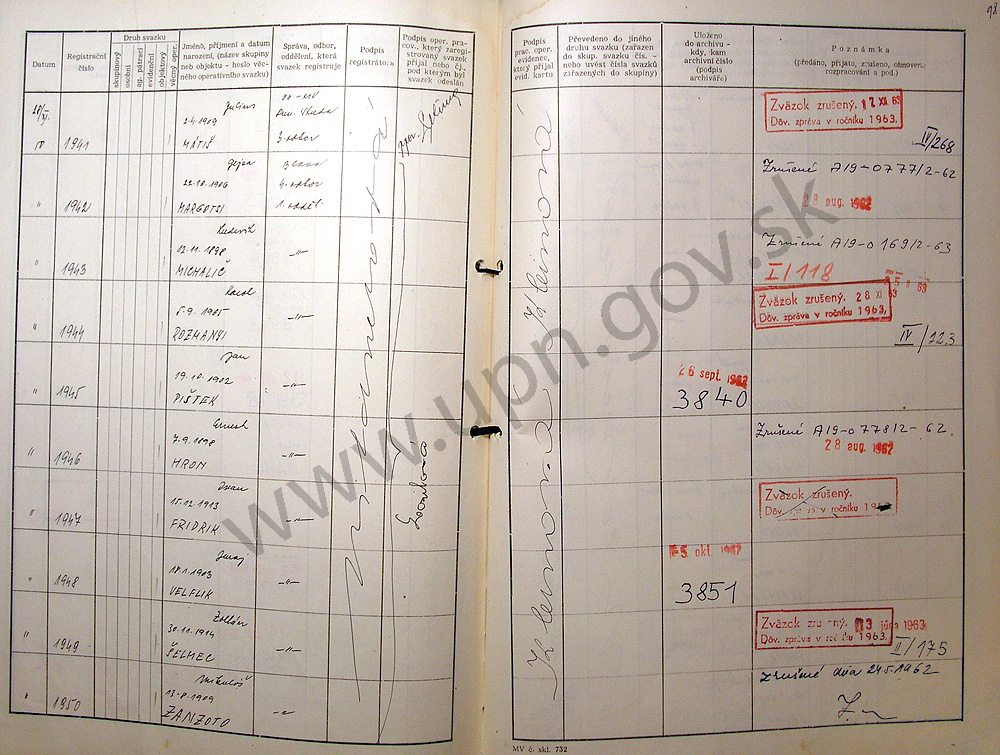 98
Datum
Registrační číslo
Druh svazku
skupinový
osobní
ag. pátrací
evidenční
objektový
věcný oper.
Jméno, příjmení a datum narození, (název skupiny neb objektu - heslo věcného operativního svazku)
Správa, odbor, oddělení, která svazek registruje
Podpis registrátora
Podpis oper. pracov., který zaregistrovaný svazek přijal nebo čj., pod kterým byl svazek odeslán
Podpis prac. oper. evidence, který přijal evid. kartu
Převedeno do jiného druhu svazku (zařazen do skup. svazku čís. - nebo uvést čísla svazků zařazených do skupiny)
Uloženo do archivu - kdy, kam archivní číslo (podpis archiváře)
Poznámka
(předáno, přijato, zrušeno, obnoveno rozpracování a pod.)
1941
Julius
2.4.1909
MÁTIŠ
3. odbor
Zväzok zrušený. 12 XI 63
Dôv. zpráva v ročníku 1963.
IV/268
" 1942
Gejza
22.10.1906
MARGOTSI
4. odbor
1. oddel.
Zrušené A/19-0777/2-62
28 aug. 1962
" 1943
Ľudovít
12.11.1898
MICHALIČ
-"-
Zrušené A/19-0169/2-63
I/118
" 1944
Karol
5.9.1905
ROZMANYI
-"-
Zväzok zrušený. 28 XI 63
Dôv. zpráva v ročníku 1963.
IV/123
" 1945
Jan
19.10.1902
PIŠTEK
-"-
26 sept. 1962
3840
" 1946
Ernest
7.9.1898
HRON
-"-
Zrušené A/19-0778/2-62.
28 aug. 1962
" 1947
Ivan
15.12.1913
FRIDRIK
-"-
Zväzok zrušený.
Dôv. zpráva v ročníku
" 1948
Juraj
18.1.1903
VELFLIK
-"-
5. okt. 1962
3851
" 1949
Zoltán
30.11.1914
ŠELMEC
-"-
Zväzok zrušený. 03 júna 1963
Dôv. zpráva v ročníku 1963.
II/175
" 1950
Mikuláš
13.8.1909
ZANZOTO
-"-
Zrušené dňa 24.5.1962
Kleinová
Kleinová
MV č. skl. 732
www.upn.gov.sk